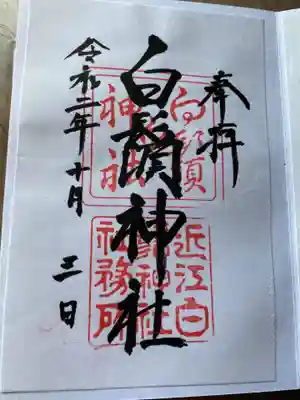 奉拝
白鬚神社
白鬚
神社
近江白
鬚神社
社務所
令和二年十月
三日